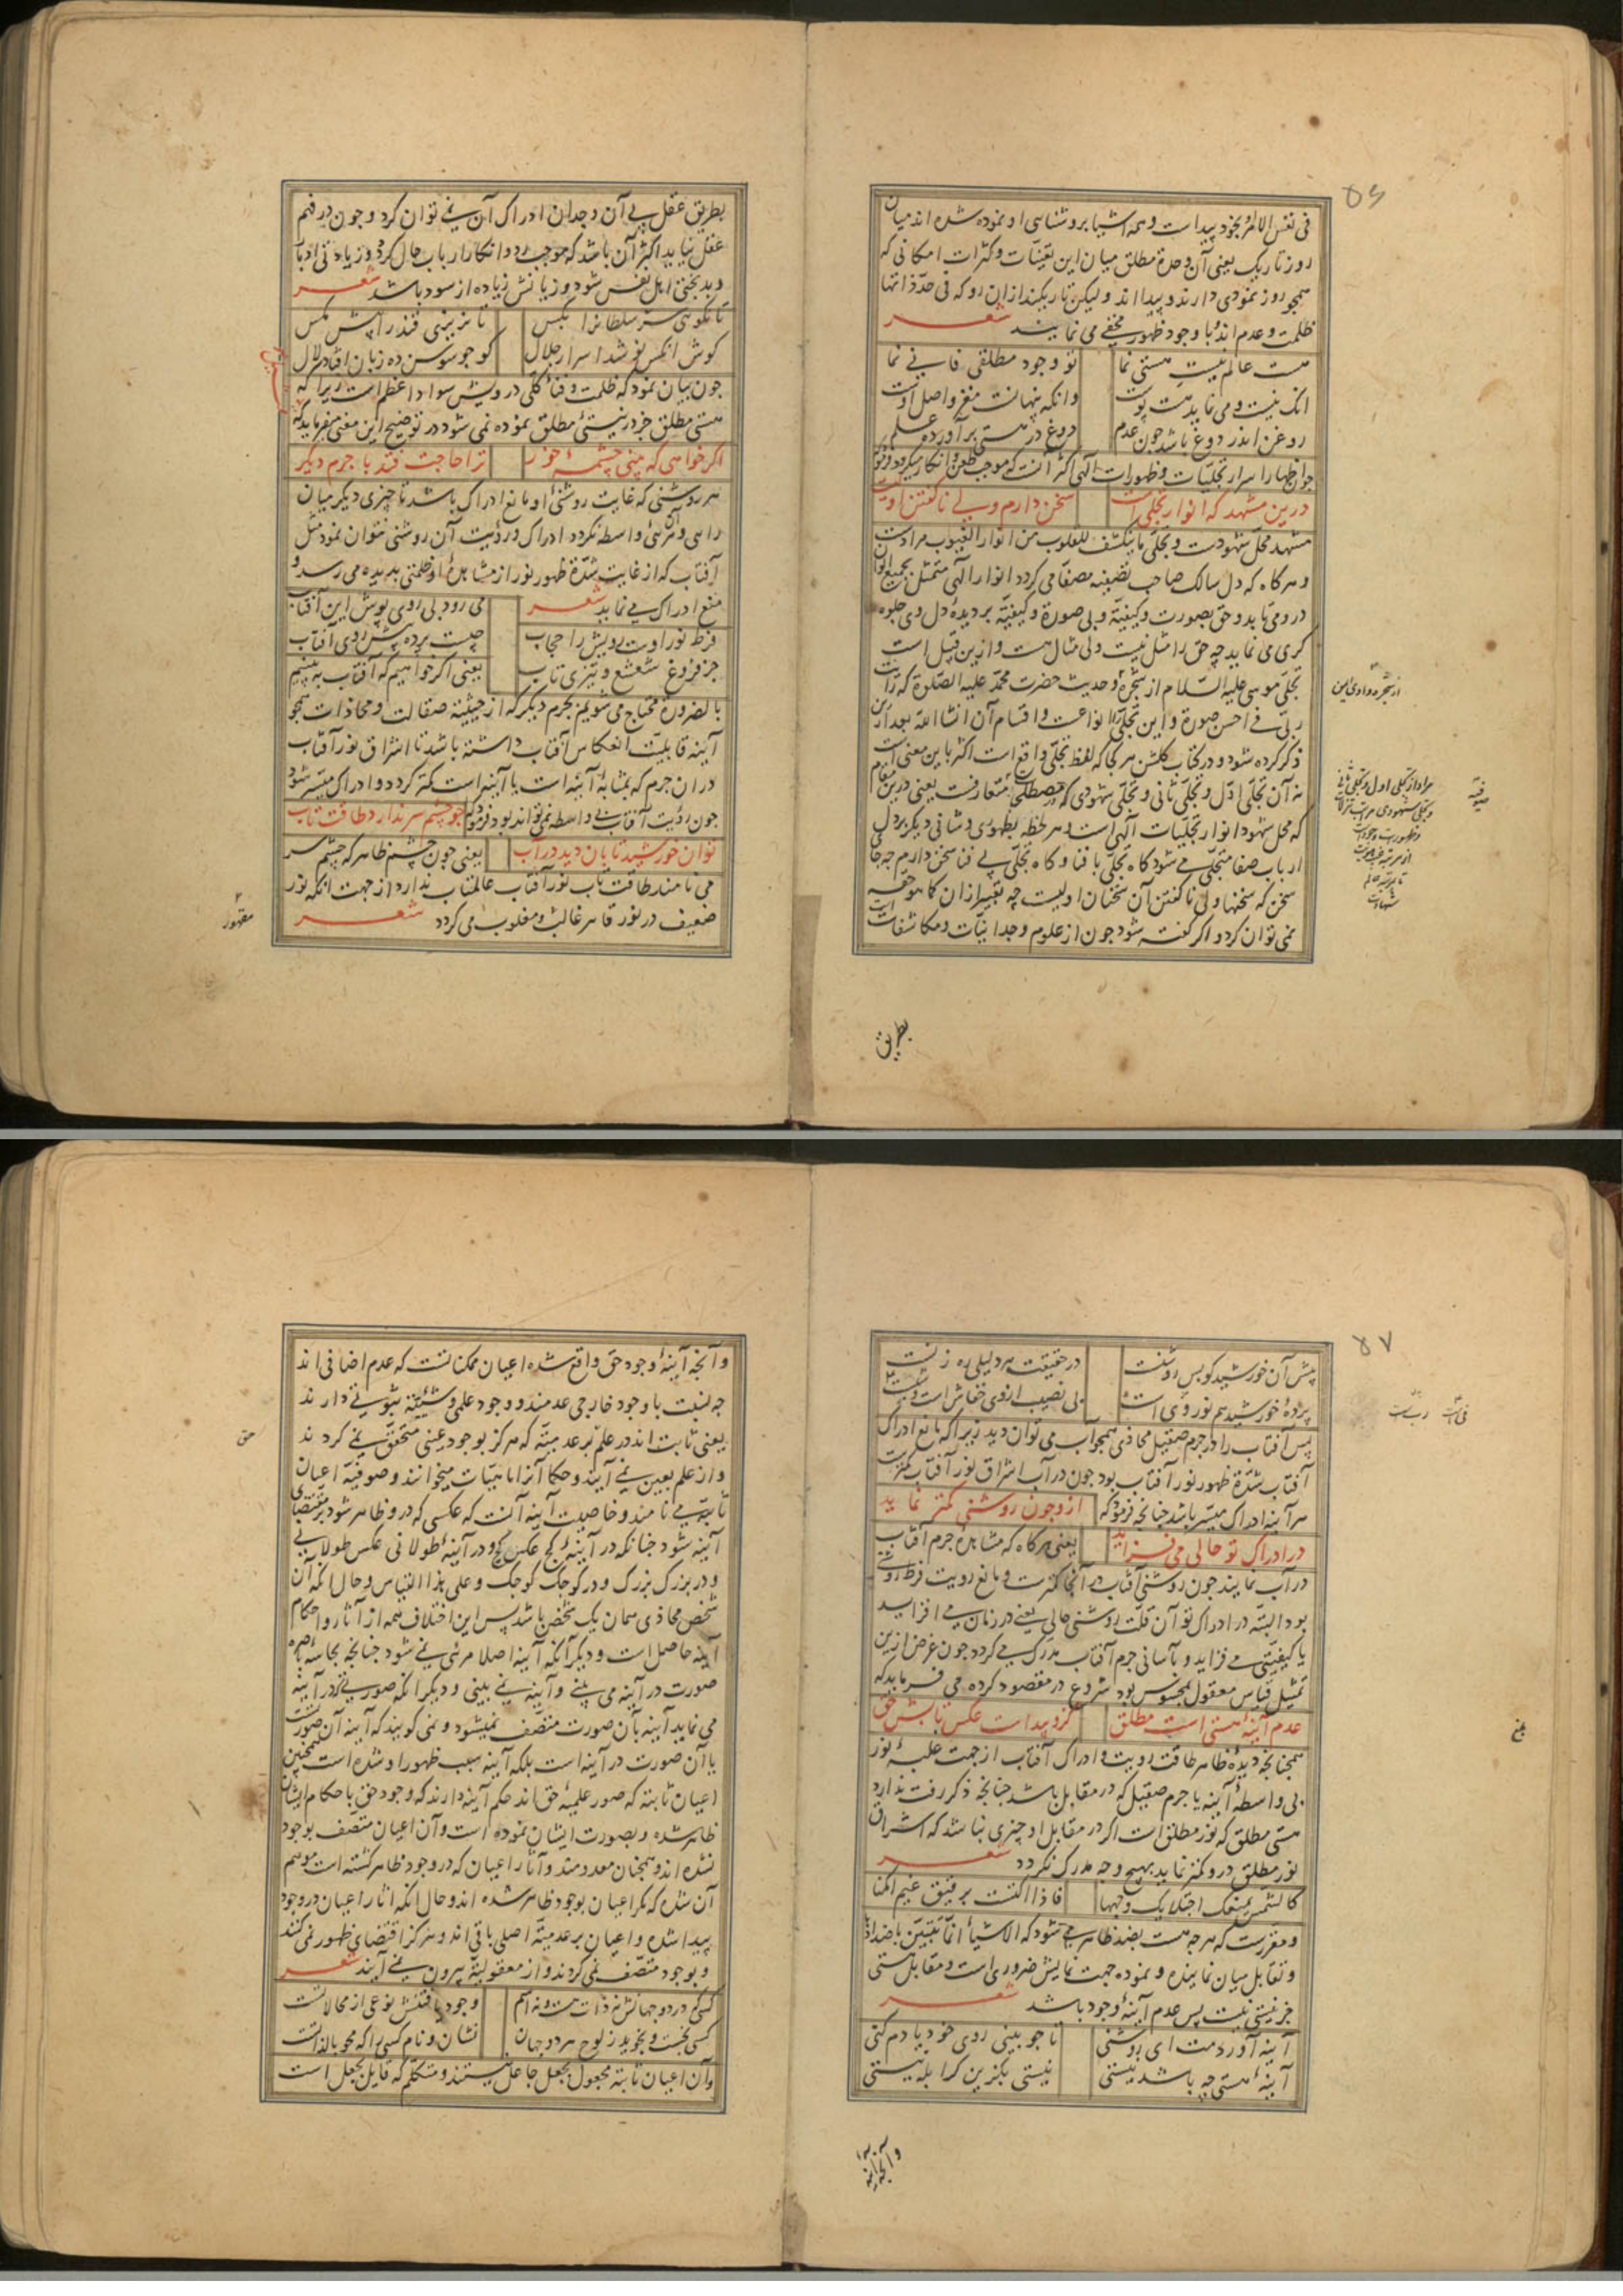 ۵۶
فی نفس الامر بخود پیداست و همه اشیا بروشنایی او نموده شده اند میان
روز تاریک یعنی آن وحدة مطلق میان این تعینات و کثرات امکانی که
همچو روز نمودی دارند و پیدا اند ولیکن تاریکند ازان رو که فی حد ذاتها
ظلمت و عدم اند با وجود ظهور مخفی می نمایند شعر
هست عالم نیست هستی نما تو وجود مطلقی فانی نما
انک نیست و می نماید هست پوست وانکه پنهانست مغز و اصل اوست
روغن اندر دوغ باشد چون عدم دوغ در هستی برآورده علم
چون اظهار اسرار تجلیات و ظهورات الهی اکثر آنست که موجب طعن و انکار میکردد فرمود
درین مشهد که انوار تجلی است سخن دارم ولی نا کفتن اولیست
مشهد محل شهودست و تجلی ما ینکشف للقلوب من انوار الغیوب مرادست
و هر کاه که دل سالک صاحب تصفیه مصفا می کردد انوار الهی متمثل بجمیع الوان
درو می تابد و حق بصورت و کیفیة و بی صورة و کیفیة بر دیدۀ دل وی جلوه
کری می نماید چه حق را مثل نیست ولی مثال هست و ازین قبیل است
تجلی موسی علیه السلام از شجرة و حدیث حضرت محمد علیه الصلوة که رأیت
ربی فی احسن صورة و این تجلی را انواعست و اقسام آن انشا الله بعد ازین
ذکر کرده شود و در کتاب کلشن هر کجا که لفظ تجلی واقع است اکثر باین معنی است
نه آن تجلی اول و تجلی ثانی و تجلی شهودی که مصطلح متعارفست یعنی درین مقام
که محل شهود انوار تجلیات الهی است و هر لحظه بطوری و شانی دیکر بر دل
ارباب صفا متجلی می شود کاه تجلی با فنا و کاه تجلی بی فنا سخن دارم چه جا
سخن که سخنها ولی نا کفتن آن سخنان اولیست چه تعبیر ازان کما هو حقه
نمی توان کرد و اکر کفته شود چون از علوم وجدانیات و مکاشفات است
از شجره وادی ایمن
صوفیه
مراد از تجلی اول و تجلی ثانی
و تجلی شهودی مراتب تنزلات
و ظهورست
شهادت
بطریق
بطریق عقل بی آن وجدان ادراک آن نمی توان کرد و چون در فهم
عقل نیاید اکثر آن باشد که موجب رد و انکار ارباب حال کردد و زیادتی ادبار
و بدبختی اهل نفس شود و زیانش زیاده از سود باشد شعر
تا نکویی سر سلطانرا بکس تا نریزی قند را پیش مکس
کوش انکس نوشد اسرار جلال کو چو سوسن ده زبان افتاد لال
چون بیان نمود که ظلمت و فنأ کلی درویش سواد اعظم است زیرا که
هستی مطلق جز در نیستیٔ مطلق نموده نمی شود در توضیح این معنی میفرماید که
اکر خواهی که بینی چشمۀ خور ترا حاجت فتد با جرم دیکر
هر روشنی که غایت روشنیٔ او مانع ادراک باشد تا چیزی دیکر میان
رایی و آن مرئی واسطه نکردد ادراک و رؤیت آن روشنی نتوان نمود مثل
آفتاب که از غایت شدة ظهور نور از مشاهدۀ او ظلمتی بدیده می رسد و
منع ادراک می نماید شعر می رود بی روی پوش این آفتاب
فرط نور اوست رویش را حجاب چیست پرده پیش روی آفتاب
جز فروغ شعشع و تیزی تاب یعنی اکر خواهیم که آفتاب به بینیم
بالضرورة محتاج می شویم بجرم دیکر که از حیثیة صقالت و محاذات همچو
آینه قابلیت انعکاس آفتاب داشته باشد تا اشراق نور آفتاب
دران جرم که بمثابۀ آینه است یا آینه است کمتر کردد و ادراک میسر شود
چون رؤیت آفتاب بی واسطه نمی تواند بود فرمود که چو چشم سر ندارد طاقت تاب
توان خورشید تابان دید در آب یعنی چون چشم ظاهر که چشم سر
می نامند طاقت تاب نور آفتاب عالمتاب ندارد از جهت انکه نور
ضعیف در نور قاهر غالب و مغلوب می کردد شعر
مقهور
۵۷
پیش آن خورشید کو بس روشنست در حقیقت هر دلیلی ره زنست
پردۀ خورشید هم نور وی است بی نصیب از وی خفاش است و شب
پس آفتاب را در جرم صقیل محاذی همچو آب می توان دید زیرا که مانع ادراک
آفتاب شدة ظهور نور آفتاب بود چون در آب اشراق نور آفتاب کمترست
هر آینه ادراک میسر باشد چنانچه فرمود که ازو چون روشنی کمتر نماید
در ادراک تو حالی می فزاید یعنی هر کاه که مشاهدۀ جرم آفتاب
در آب نمایند چون روشنی آفتاب در آنجا کمترست و مانع رویت فرط روشنی
بود البته در ادراک تو آن قلت روشنی حالی یعنی در زمان می افزاید
یا کیفیتی می فزاید و بآسانی جرم آفتاب مدرک می کردد چون غرض ازین
تمثیل قیاس معقول بمحسوس بود شروع در مقصود کرده می فرماید که
عدم آیینۀ هستی است مطلق کزو پیداست عکس تابش حق
همچنانچه دیدۀ ظاهر طاقت رویت و ادراک آفتاب از جهت غلبۀ نور
بی واسطۀ آینه یا جرم صقیل که در مقابل باشد چنانچه ذکر رفت ندارد
هستی مطلق که نور مطلق است اکر در مقابل او چیزی نباشد که اشراق
نور مطلق درو کمتر نماید بهیچ وجه مدرک نکردد شعر
کالشمس یمنعک اجتلایک وجهها فاذا اکتست برقیق غیم امکنا
و مقررست که هرچه هست بضد ظاهر می شود که الاشیأ انما تتبین باضدادها
و تقابل میان نماینده و نموده جهت نمایش ضروری است و مقابل هستی
جز نیستی نیست پس عدم آینۀ وجود باشد شعر
آینه آوردمت ای روشنی تا چو بینی روی خود یادم کنی
آینۀ هستی چه باشد نیستی نیستی بکزین کر ابله نیستی
وآنچه آینه
وآنچه آینۀ وجود حق واقع شده اعیان ممکناتست که عدم اضافی اند
چه نسبت با وجود خارجی عدمند و وجود علمی و شیئیة ثبوتی دارند
یعنی ثابت اند در علم بر عدمیته که هرکز بوجود عینی متحقق نمی کردند
و از علم بعین نمی آیند و حکما آنرا ماهیات میخوانند و صوفیه اعیان
ثابته می نامند و خاصیت آینه آنست که عکسی که درو ظاهر شود بمقتضای
آینه شود چنانکه در آینۀ کج عکس کج و در آینۀ طولانی عکس طولانی
و در بزرک بزرک و در کوچک کوچک و علی هذا القیاس و حال انکه آن
شخص محاذی همان یک شخص باشد پس این اختلاف همه از آثار و احکام
آینه حاصل است و دیکر آنکه آینه اصلا مرئی نمی شود چنانچه بحاسه باصره
صورت در آینه می بینی و آینه نمی بینی و دیکر انکه صورتی که در آینه
می نماید آینه بآن صورت متصف نمیشود و نمی کویند که آینه آن صورتست
یا آن صورت در آینه است بلکه آینه سبب ظهور او شده است همچنین
اعیان ثابته که صور علمیۀ حق اند حکم آینه دارند که وجود حق باحکام ایشان
ظاهر شده و بصورت ایشان نموده است و آن اعیان متصف بوجود
نشده اند و همچنان معدومند و آثار اعیان که در وجود ظاهر کشته است موهم
آن شده که مکر اعیان بوجود ظاهر شده اند و حال انکه اثار اعیان در وجود
پیدا شده و اعیان بر عدمیة اصلی باقی اند و هرکز اقتضای ظهور نمی کنند
و بوجود متصف نمی کردند و از معقولیة بیرون نمی آیند شعر
کسی کم در دو جهانش نه ذات هست و نه اسم وجود یافتنش نوعی از محالاتست
کسی بجست و بخوید ز لوح هر دو جهان نشان و نام کسی را که محو بالذاتست
وآن اعیان ثابته مجعول بجعل جاعل نیستند و متکلم که قایل بجعل است
حق